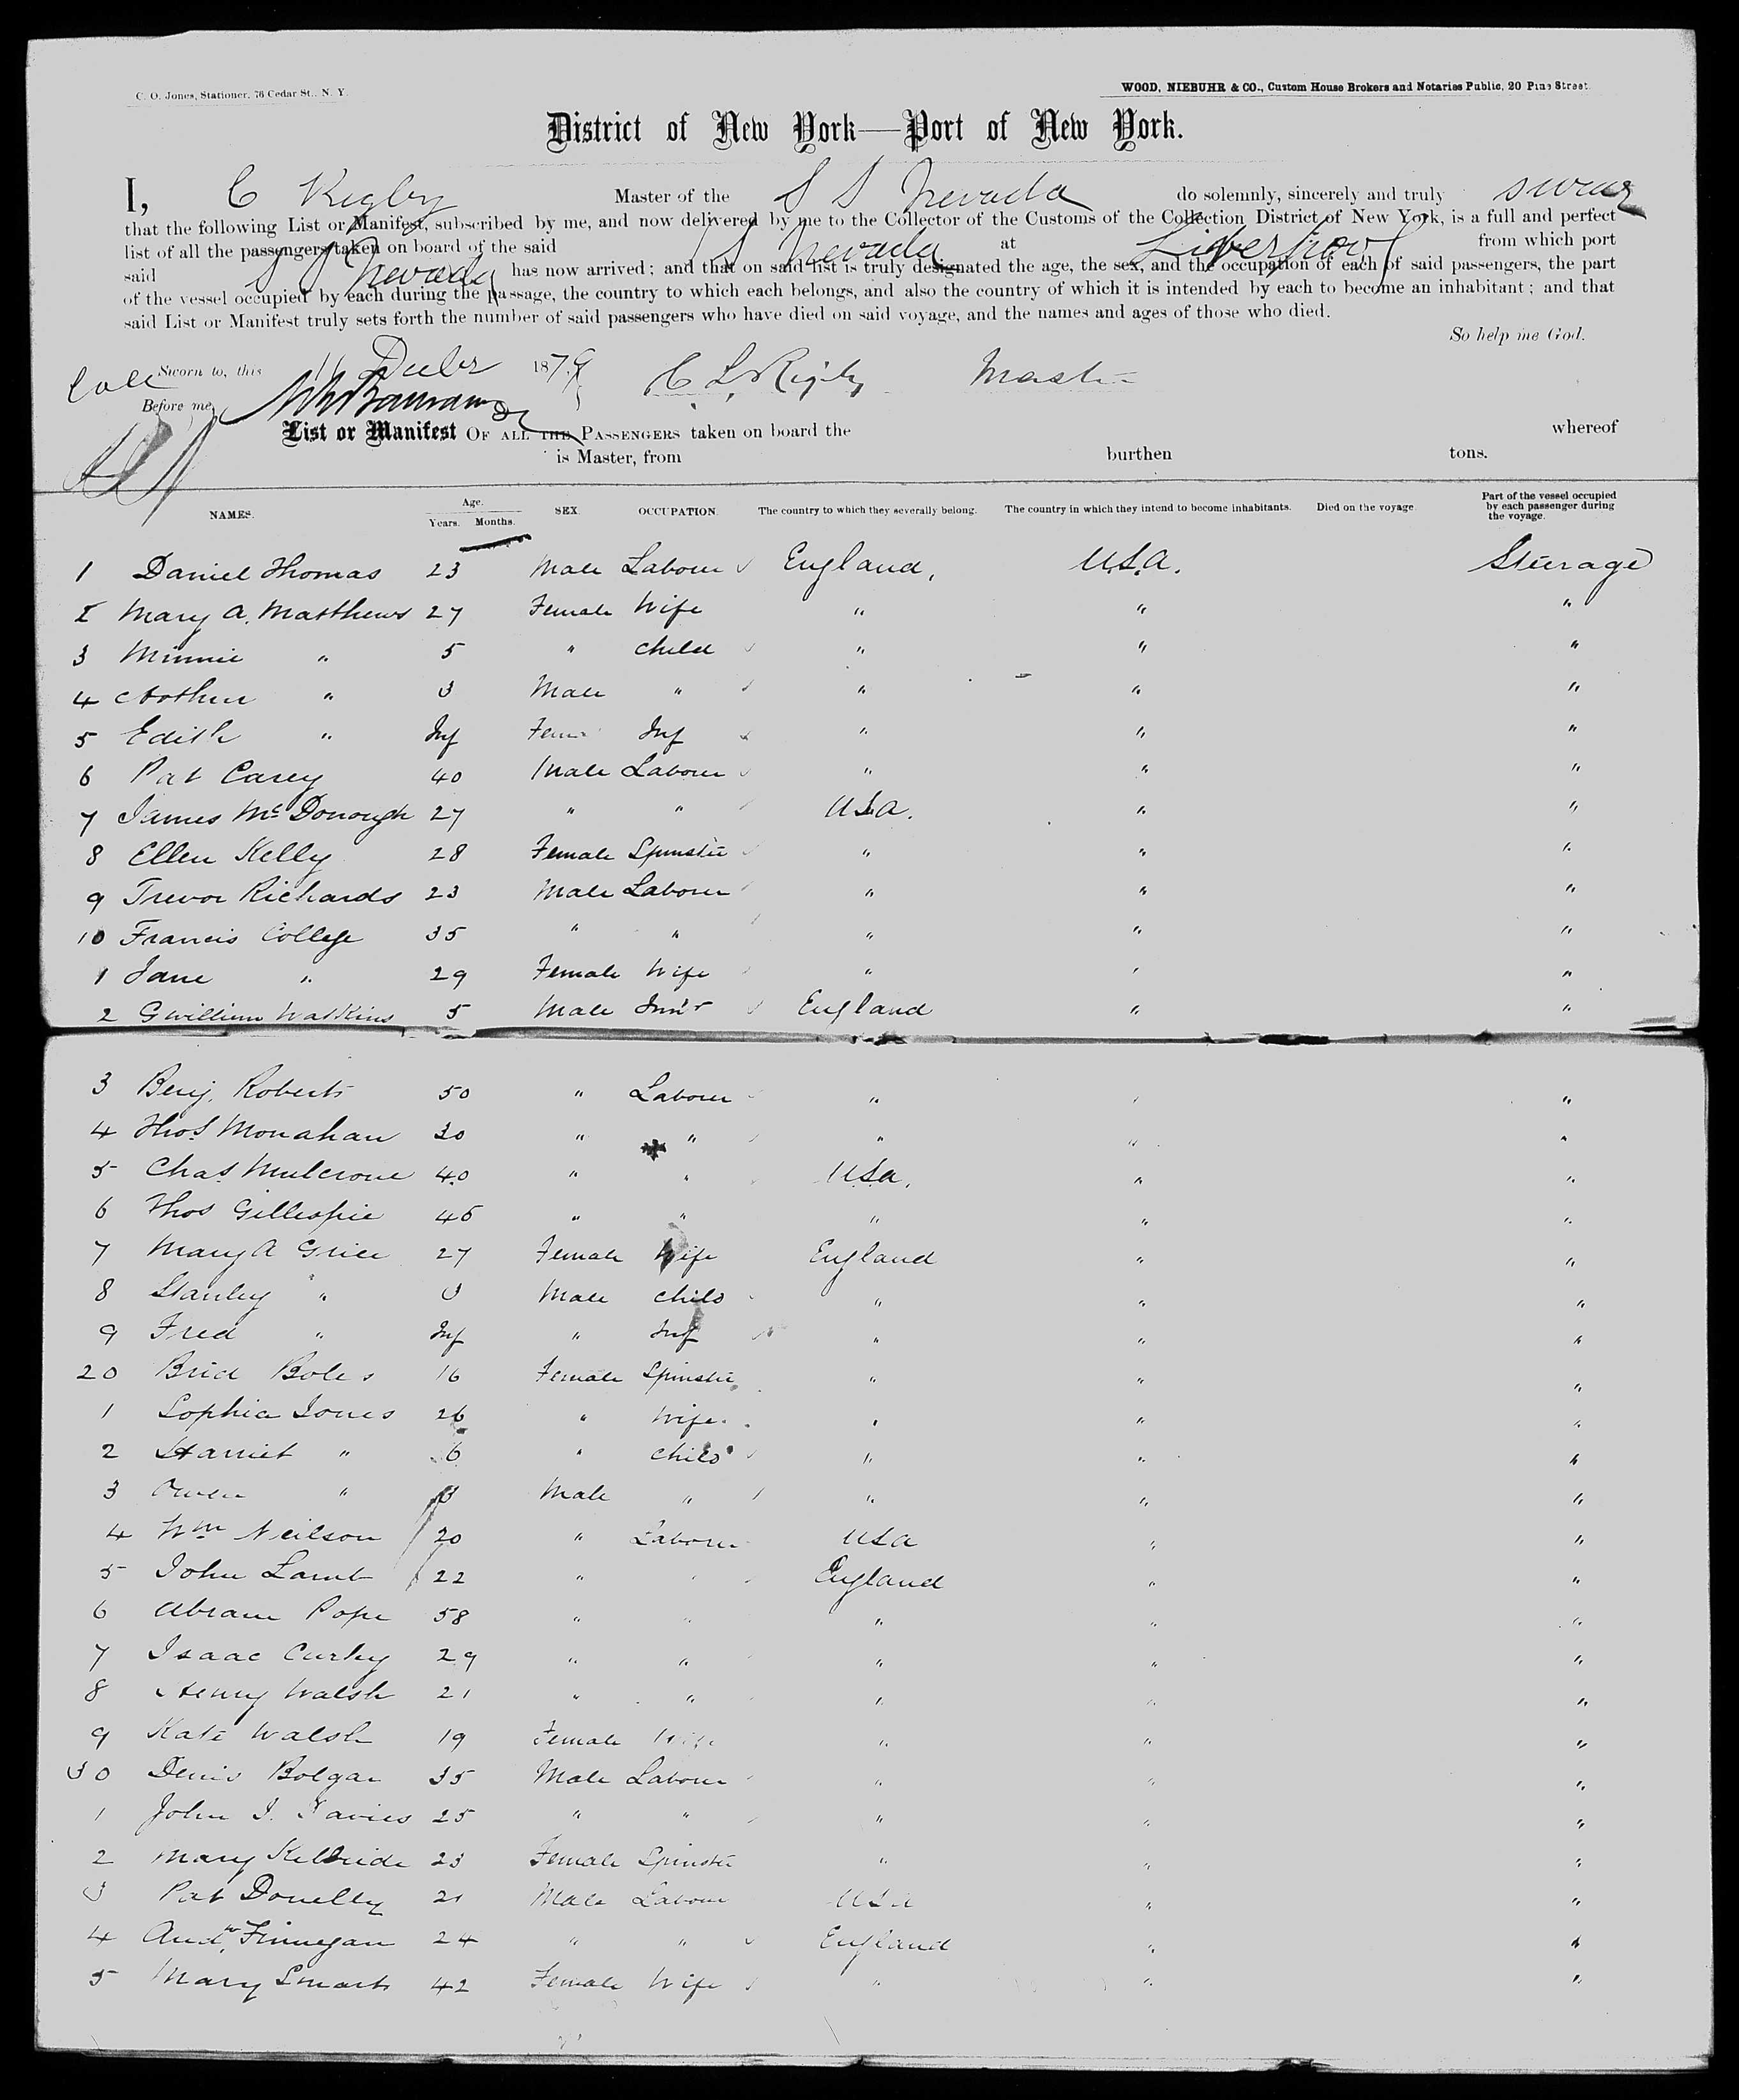 C. O. Jones, Stationer, 76 Cedar St., N. Y.
WOOD, NIEBUHR & CO., Custom House Brokers and Notaries Public, 20 Pine Street.
District of New York—Port of New York.
I, C Rigby Master of the S S Nevada do solemnly, sincerely and truly swear
that the following List or Manifest, subscribed by me, and now delivered by me to the Collector of the Customs of the Collection District of New York, is a full and perfect
list of all the passengers taken on board of the said S S Nevada at Liverpool from which port
said S S Nevada has now arrived; and that on said list is truly designated the age, the sex, and the occupation of each of said passengers, the part
of the vessel occupied by each during the passage, the country to which each belongs, and also the country of which it is intended by each to become an inhabitant; and that
said List or Manifest truly sets forth the number of said passengers who have died on said voyage, and the names and ages of those who died.
So help me God.
Sworn to, this 11 Decbr 1879 C L Rigby Master
Before me,
List or Manifest OF ALL THE PASSENGERS taken on board the whereof
is Master, from burthen tons.
NAMES. Age. Years. Months. SEX. OCCUPATION. The country to which they severally belong. The country in which they intend to become inhabitants. Died on the voyage. Part of the vessel occupied by each passenger during the voyage.
1 Daniel Thomas 23 Male Labour England, U.S.A. Steerage
2 Mary A. Matthews 27 Female Wife " " "
3 Minnie " 5 " Child " " "
4 Arthur " 3 Male " " " "
5 Edith " Inf Fem Inf " " "
6 Pat Carey 40 Male Labour " " "
7 James McDonough 27 " " USA. " "
8 Ellen Kelly 28 Female Spinster " " "
9 Trevor Richards 23 Male Labour " " "
10 Francis College 35 " " " " "
1 Jane " 29 Female Wife " " "
2 Gwillim Watkins 5 Male England " "
3 Benj. Roberts 50 " Labour " " "
4 Thos Monahan 30 " " " " "
5 Chas Mulcrone 40 " " USA. " "
6 Thos Gillespie 45 " " " " "
7 Mary A Grice 27 Female Wife England " "
8 Stanley " 3 Male Child " " "
9 Fred " Inf " Inf " " "
20 Brid Boles 16 Female Spinster " " "
1 Sophia Jones 26 " Wife " " "
2 Harriet " 6 " Child " " "
3 Owen " 3 Male " " " "
4 Wm Neilson 20 " Labour USA " "
5 John Lamb 22 " " England " "
6 Abram Pope 58 " " " " "
7 Isaac Curley 29 " " " " "
8 Henry Walsh 21 " " " " "
9 Kate Walsh 19 Female Wife " " "
30 Denis Bolgar 35 Male Labour " " "
1 John J. Davies 25 " " " " "
2 Mary Kilbride 23 Female Spinster " " "
3 Pat Donelly 21 Male Labour USA " "
4 Andw. Finnegan 24 " " England " "
5 Mary Smart 42 Female Wife " " "